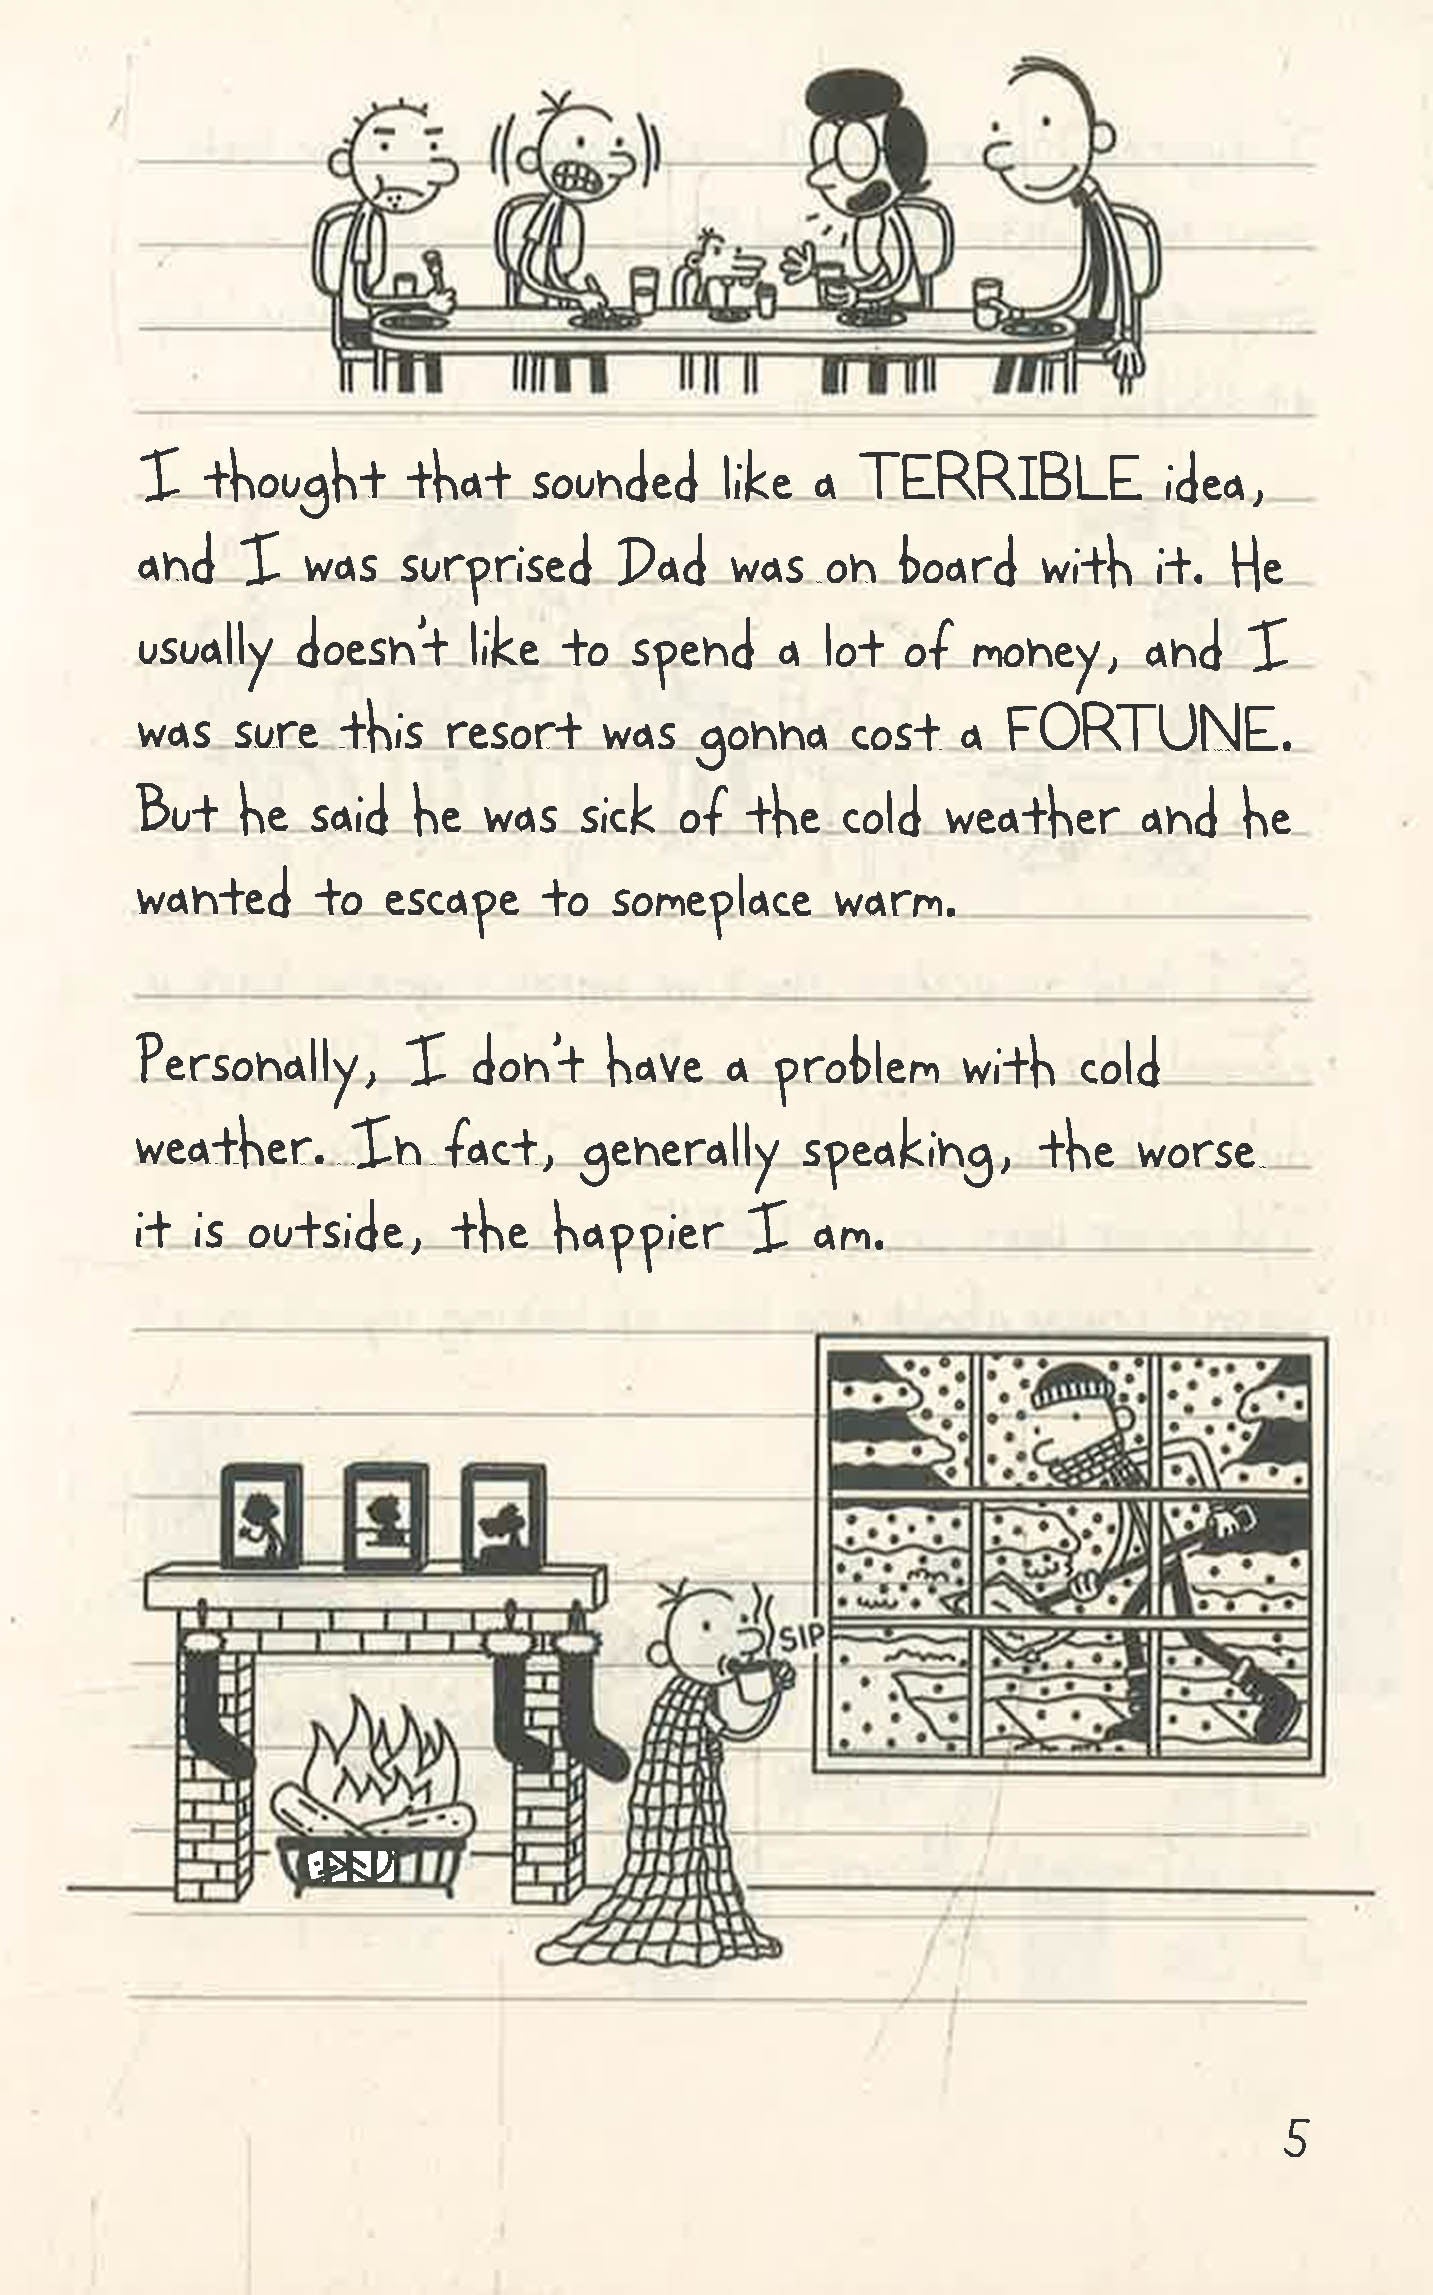 I thought that sounded like a TERRIBLE idea,
and I was surprised Dad was on board with it. He
usually doesn't like to spend a lot of money, and I
was sure this resort was gonna cost a FORTUNE.
But he said he was sick of the cold weather and he
wanted to escape to someplace warm.
Personally, I don't have a problem with cold
weather. In fact, generally speaking, the worse
it is outside, the happier I am.
SIP
5